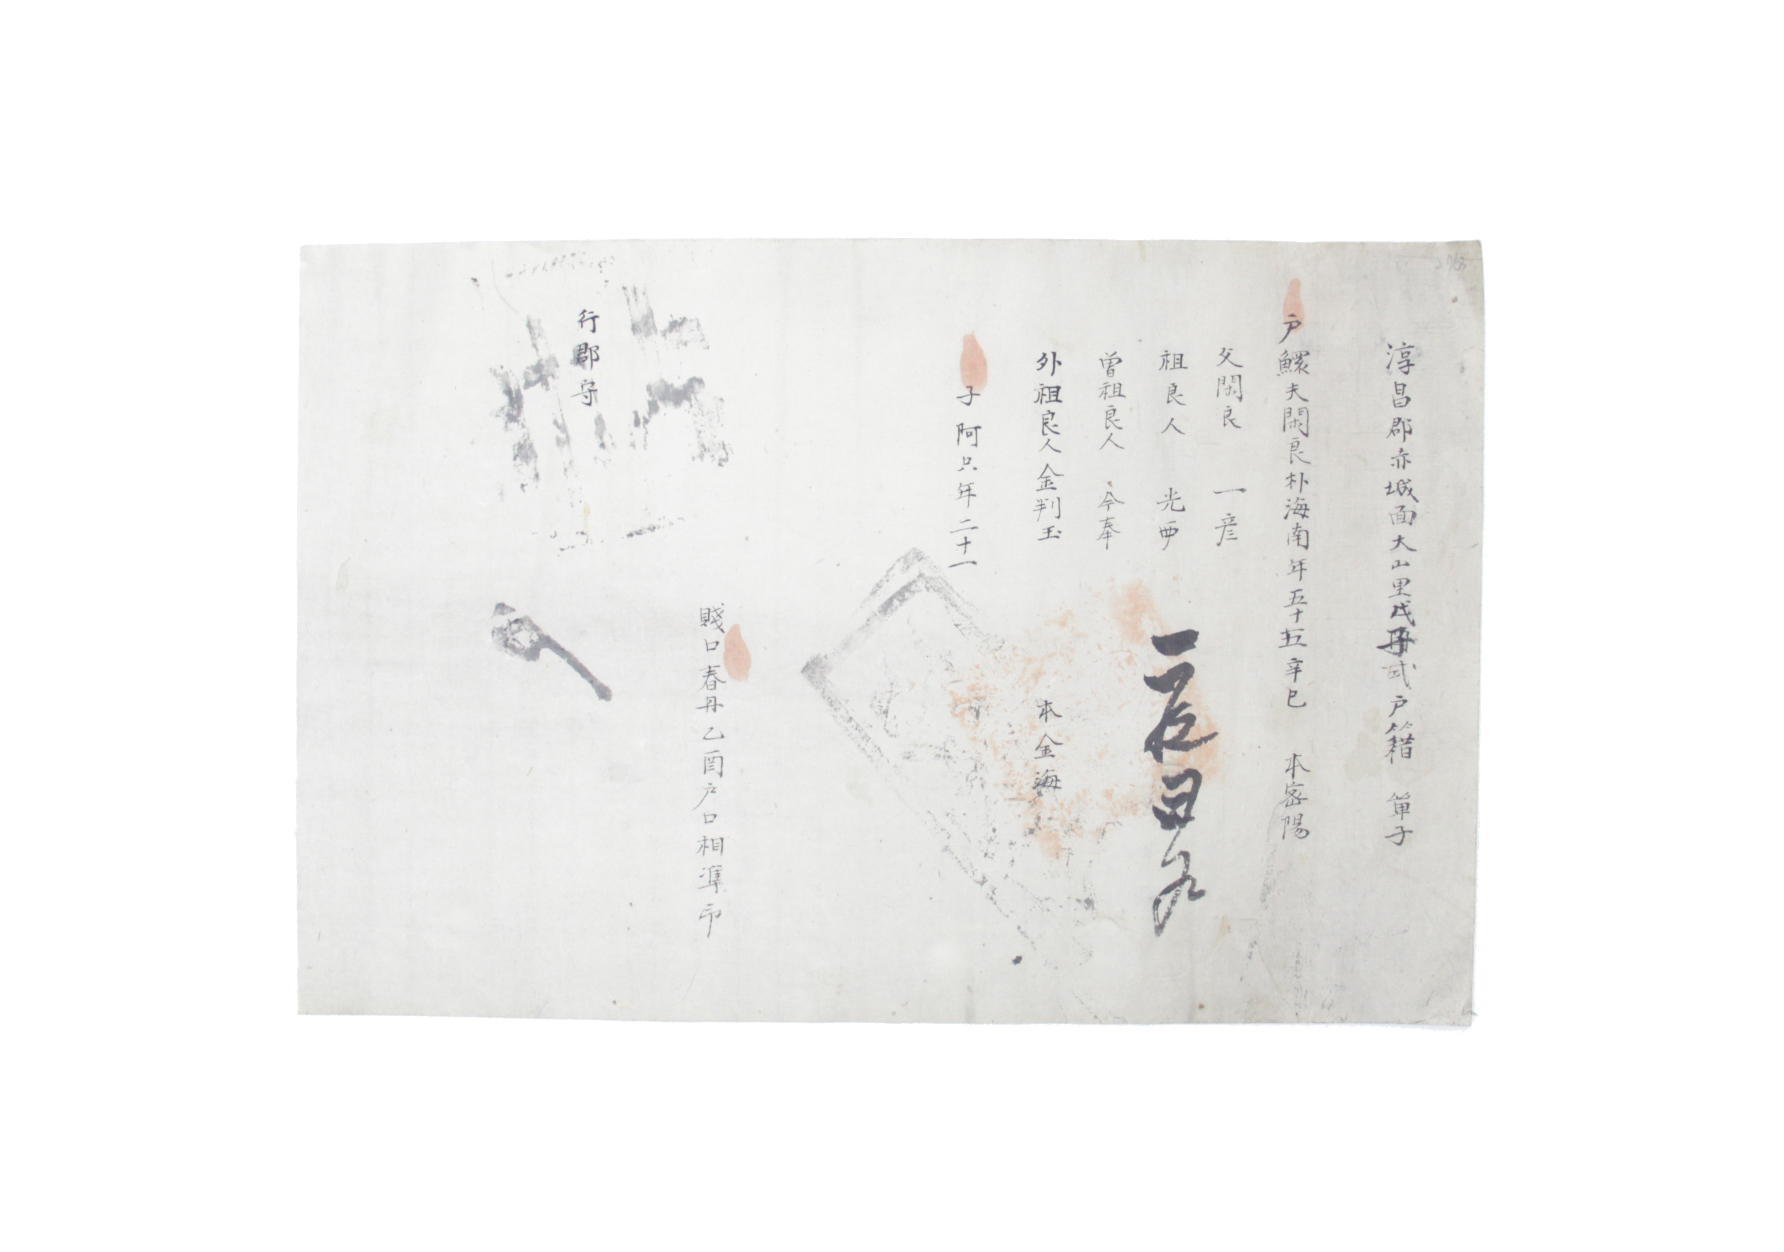 淳昌郡赤城面大山里戊子式戶籍 單子
戶鰥夫閑良朴海南年五十五辛巳 本密陽
父閑良 一彦
祖良人 光西
曾祖良人 今奉
外祖良人金判玉 本金海
子阿只年二十一
賤口春丹乙酉戶口相準印
行郡守